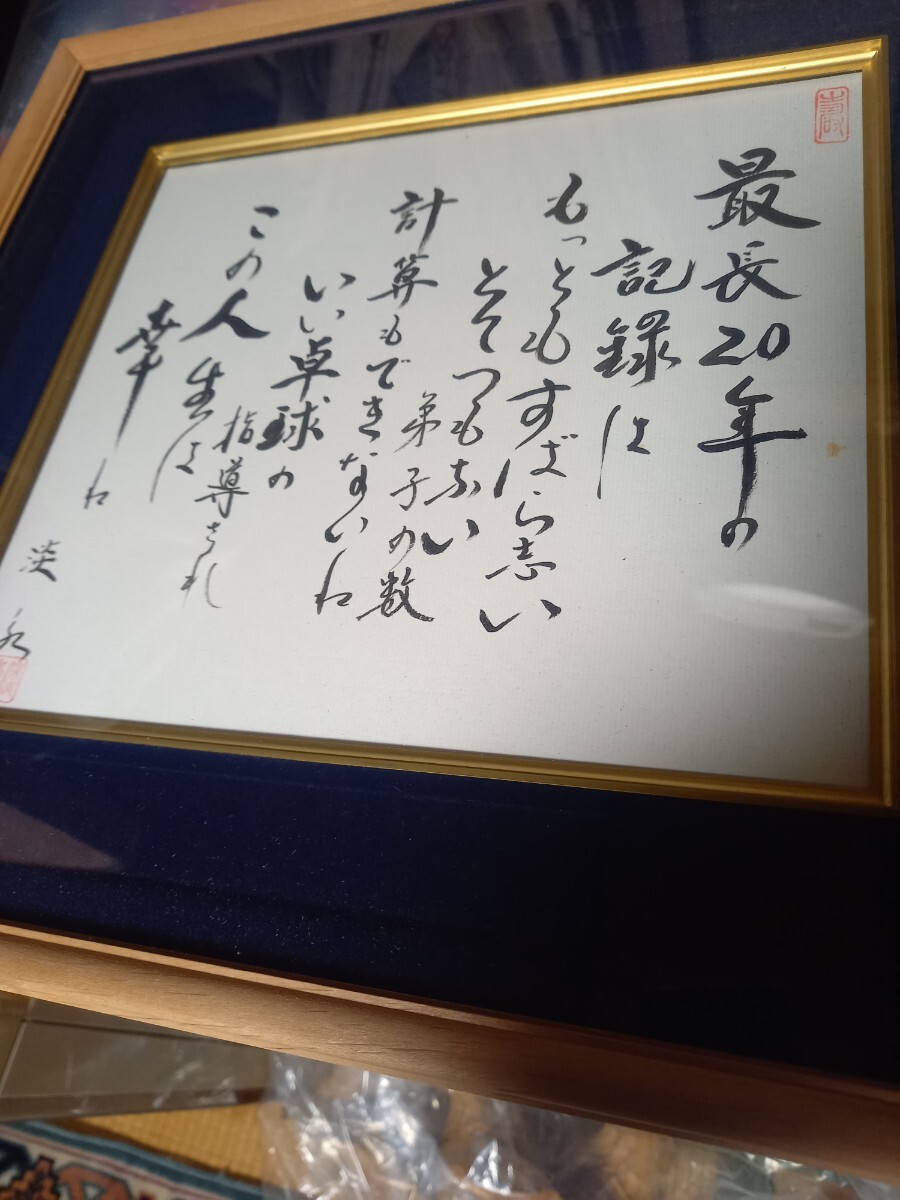 壽
最長20年の
記録は
もっともすばら志い
とてつもない
弟子の数
計算もできないね
いい卓球の
指導され
この人生は
幸ね
淡